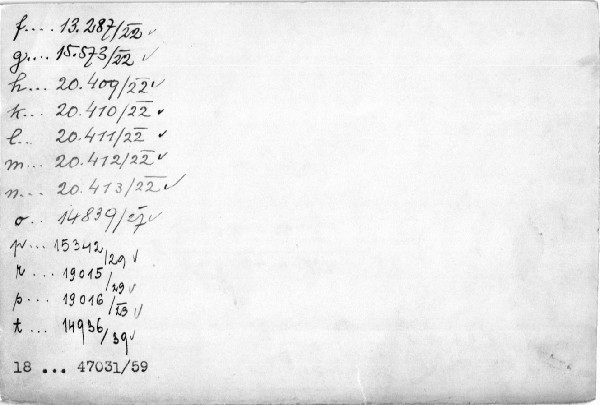 f.... 13.287/22 ✓
g.... 15.573/22 ✓
h... 20.409/22 ✓
k... 20.410/22 ✓
l... 20.411/22 ✓
m... 20.412/22 ✓
n... 20.413/22 ✓
o... 14839/27 ✓
p... 15342/29 ✓
r... 19015/29 ✓
s... 19016/29 ✓
t... 14936/39 ✓
18 ... 47031/59